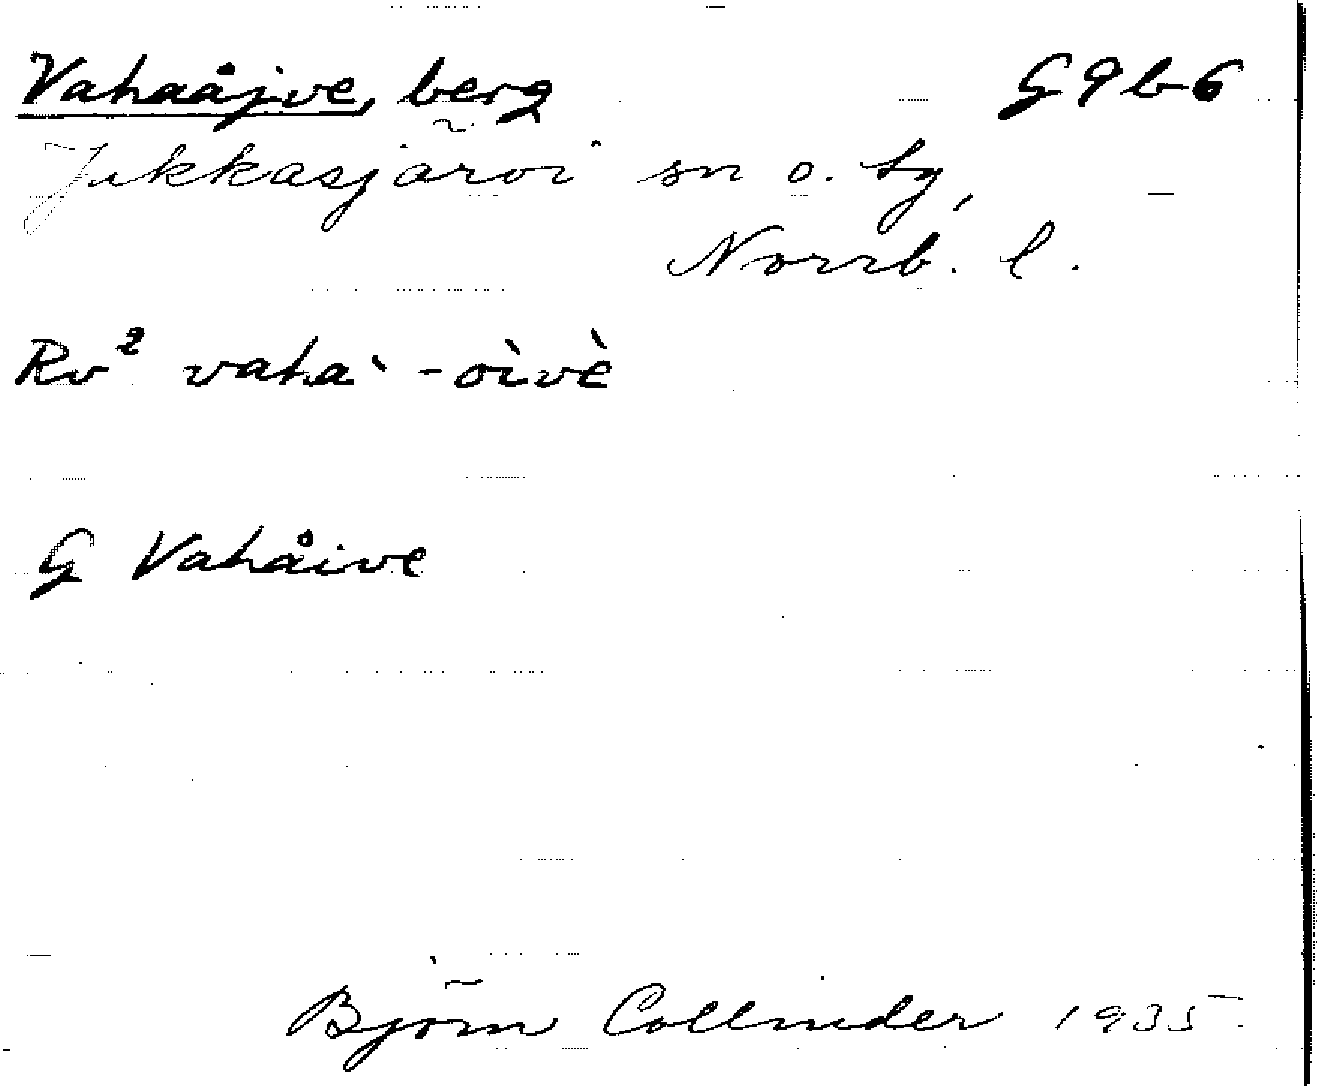 Vahaåjve, berg G9b6
Jukkasjärvi sn o. tg,
Norrb. l.
Rv² vahaˋ-oìvè
G Vahåive
Björn Collinder 1935.